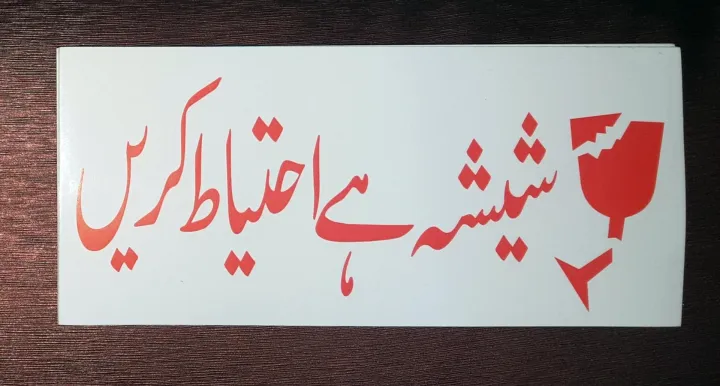 شیشہ ہے احتیاط کریں